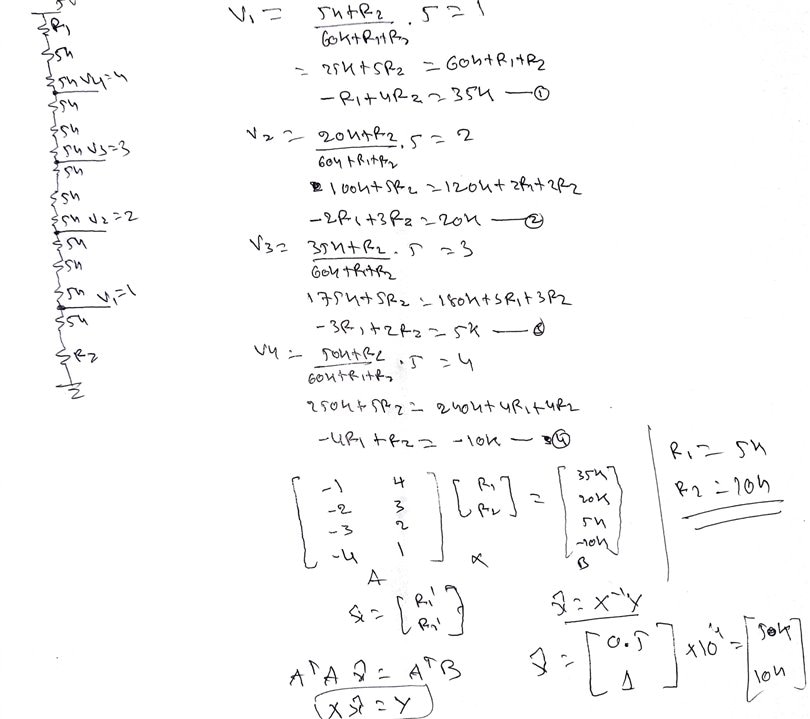 R1
5k
5k V4=4
5k
5k
5k V3=3
5k
5k
5k V2=2
5k
5k
5k V1=1
5k
R2
V1 = (5k+R2)/(60k+R1+R2) . 5 = 1
= 25k+5R2 = 60k+R1+R2
-R1+4R2 = 35k — ①
V2 = (20k+R2)/(60k+R1+R2) . 5 = 2
100k+5R2 = 120k+2R1+2R2
-2R1+3R2 = 20k — ②
V3 = (35k+R2)/(60k+R1+R2) . 5 = 3
175k+5R2 = 180k+3R1+3R2
-3R1+2R2 = 5k — ③
V4 = (50k+R2)/(60k+R1+R2) . 5 = 4
250k+5R2 = 240k+4R1+4R2
-4R1+R2 = -10k — ④
R1 = 5k
R2 = 10k
[-1 4] [R1] = [35k]
[-2 3] [R2] [20k]
[-3 2] [5k]
[-4 1] [-10k]
A x B
x̂ = [R1' R2']
x̂ = X⁻¹Y
AᵀA x̂ = AᵀB
Xx̂ = Y
x̂ = [0.5 1] ×10⁴ = [50k 10k]